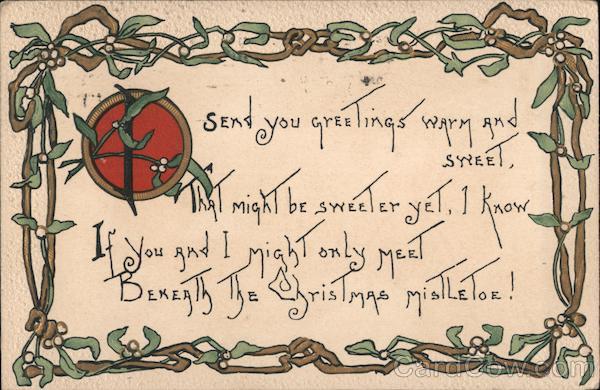 I send you greetings warm and
sweet,
That might be sweeter yet, I know
If you and I might only meet
Beneath the Christmas mistletoe!
CardCow.com